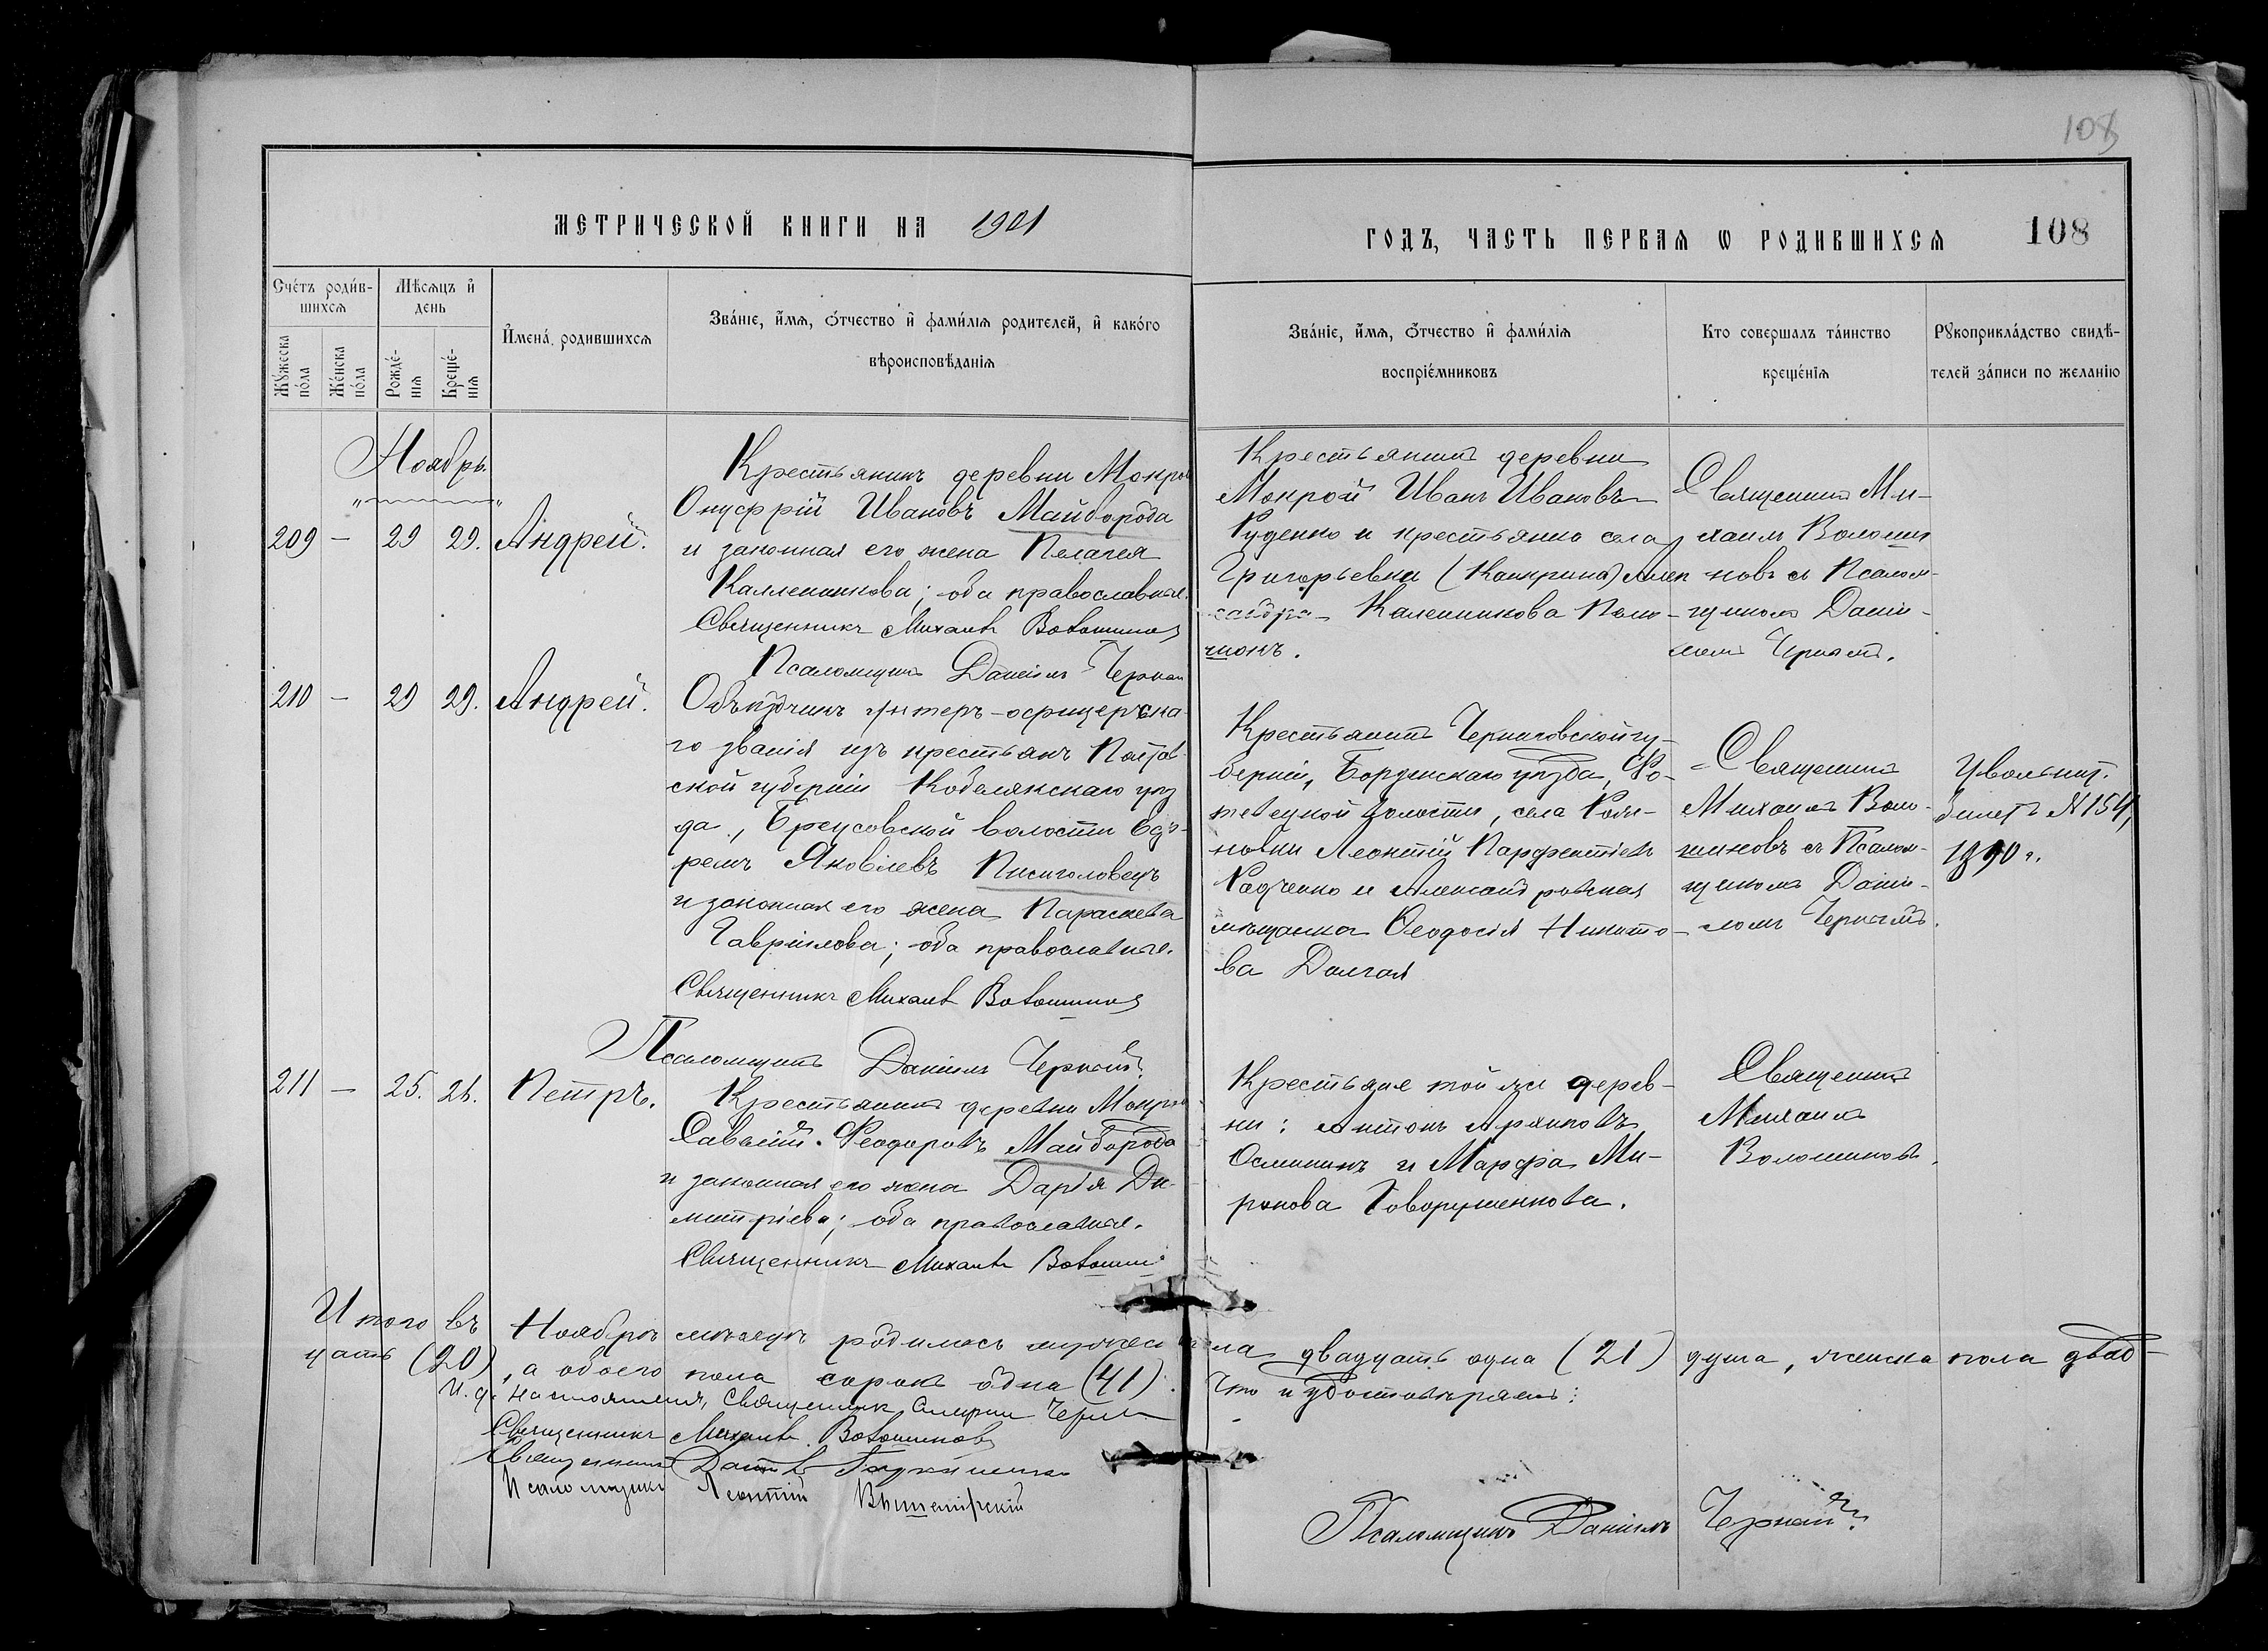 108
МЕТРИЧЕСКОЙ КНИГИ НА 1901
ГОДЪ, ЧАСТЬ ПЕРВАЯ Ѡ РОДИВШИХСЯ 108
Счетъ родив-
шихся
Мѣсяцъ и
день
Мужеска
пола
Женска
пола
Рожде-
нія
Креще-
нія
Имена родившихся
Званіе, имя, отчество и фамилія родителей, и какого
вѣроисповѣданія
Званіе, имя, отчество и фамилія
воспріемниковъ
Кто совершалъ таинство
крещенія
Рукоприкладство свидѣ-
телей записи по желанію
Ноябрь.
209 – 29 29. Андрей.
Крестьянинъ деревни Мокрой
Онуфрій Ивановъ Майборода
и законная его жена Пелагея
Каллениикова; оба православные.
Священникъ Михаилъ Волошиновъ
Псаломщикъ Даніилъ Чернай
Крестьянинъ деревни
Мокрой Иванъ Ивановъ
Руденко и крестьянка села
Григорьевки (Канкрина) Алек
сандра Калениикова Поло-
Священникъ Ми-
хаилъ Волоши
новъ съ Псалом-
щикомъ Даніи-
ломъ
210 – 29 29. Андрей.
Объѣздчикъ унтеръ-офицерска-
го званія изъ крестьянъ Полтав-
ской губерніи Кобелякскаго уѣз
да, Бреусовской волости
Яковлевъ Писиголовецъ
и законная его жена Параскева
Гавріилова; оба православные.
Священникъ Михаилъ Волошиновъ
Псаломщикъ Даніилъ Чернай
Крестьянинъ Черниговской гу-
берніи, Борзенскаго уѣзда,
волости, села
Леонтій Парфентіевъ
Радченко и Александровская
мѣщанка Ѳеодосія Никито-
ва Долгая
Священникъ
Михаилъ Воло-
шиновъ съ Псалом-
щикомъ Даніи-
ломъ
Увольнит.
билетъ №154,
1890 г.
211 – 25. 26. Петръ.
Крестьянинъ деревни Мокрой
Савелій Ѳеодоровъ Майборода
и законная его жена Дарія Ди-
митріева; оба православные.
Священникъ Михаилъ Волошинов
Крестьяне той же дерев-
ни: Антонъ Архиповъ
Осминин и Марфа Ми-
ронова Говорушенкова.
Священникъ
Михаилъ
Волошиновъ.
Итого въ Ноябрѣ мѣсяцѣ родилось мужеска пола двадцать одна (21) душа, женска пола двад-
цать (20), а обоего пола сорокъ одна (41). Что и удостовѣряемъ:
И. д. настоятеля, Священникъ
Священникъ Михаилъ Волошиновъ
Священникъ
Псаломщикъ Леонтій
Псаломщикъ Даніилъ Чернай